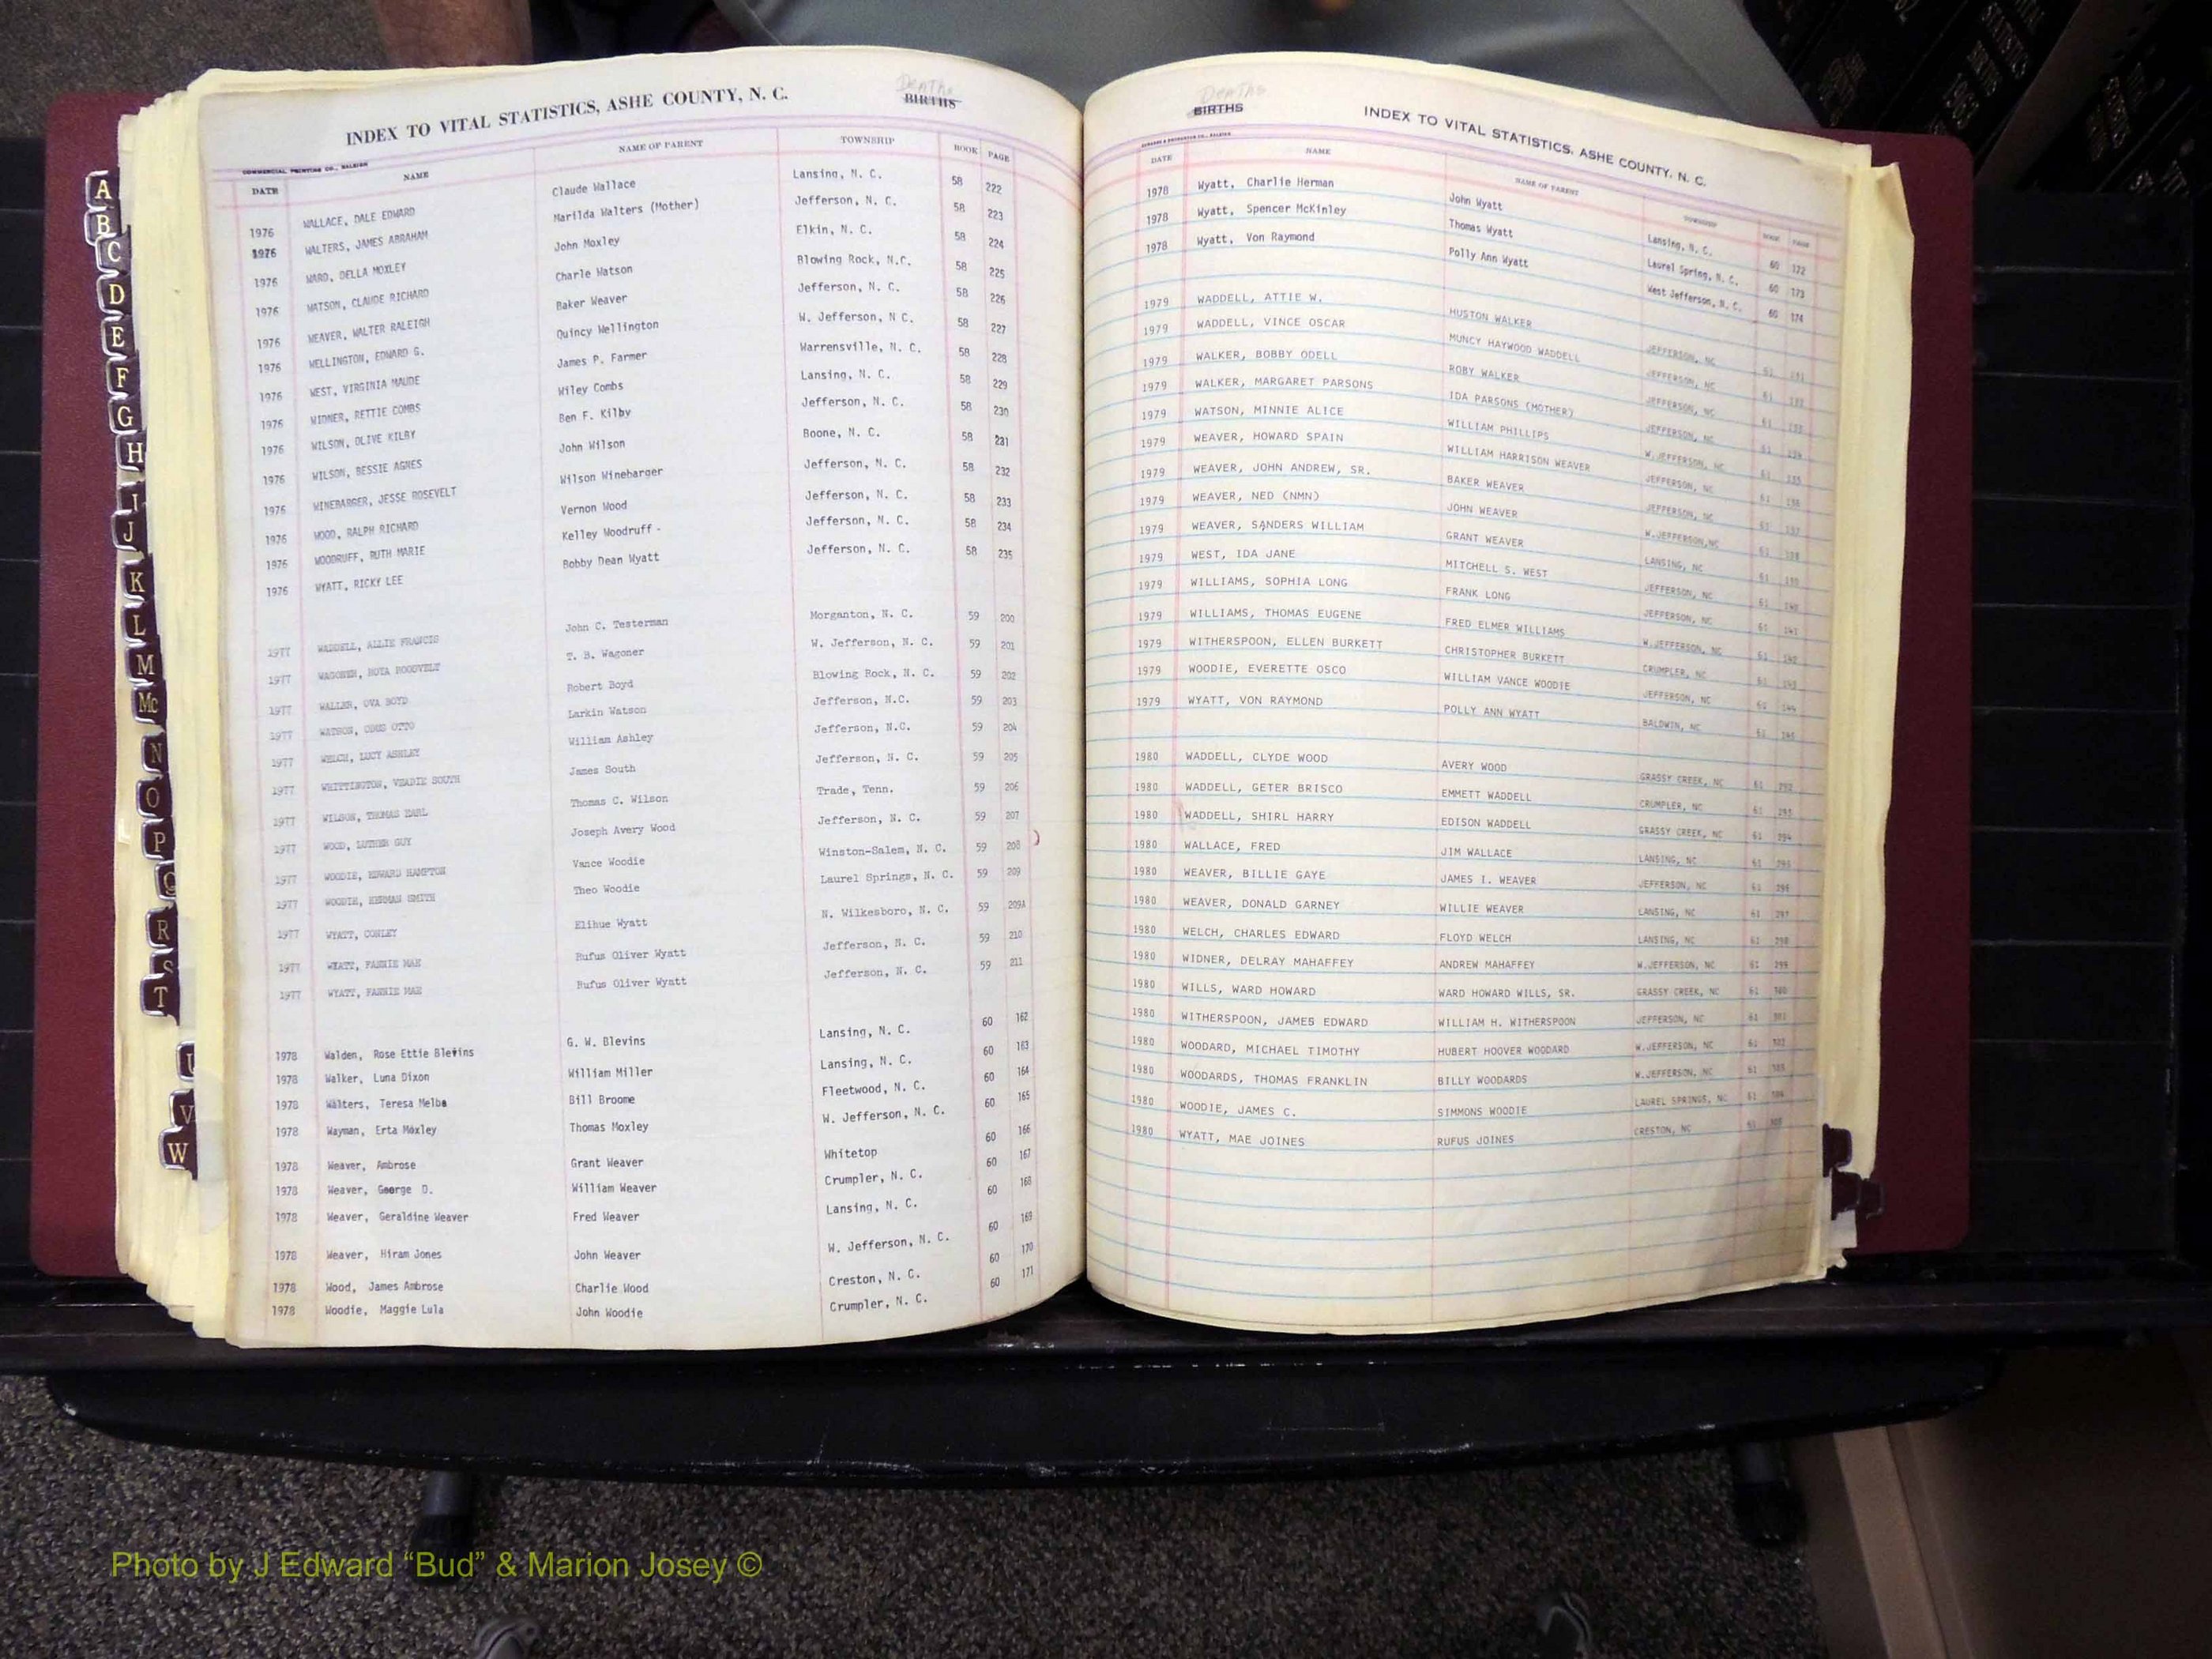 Deaths
INDEX TO VITAL STATISTICS, ASHE COUNTY, N. C. BIRTHS
COMMERCIAL PRINTING CO., RALEIGH
DATE NAME NAME OF PARENT TOWNSHIP BOOK PAGE
1976 WALLACE, DALE EDWARD Claude Wallace Lansing, N. C. 58 222
1976 WALTERS, JAMES ABRAHAM Marilda Walters (Mother) Jefferson, N. C. 58 223
1976 WARD, DELLA MOXLEY John Moxley Elkin, N. C. 58 224
1976 WATSON, CLAUDE RICHARD Charle Watson Blowing Rock, N.C. 58 225
1976 WEAVER, WALTER RALEIGH Baker Weaver Jefferson, N. C. 58 226
1976 WELLINGTON, EDWARD G. Quincy Wellington W. Jefferson, N C. 58 227
1976 WEST, VIRGINIA MAUDE James P. Farmer Warrensville, N. C. 58 228
1976 WIDNER, RETTIE COMBS Wiley Combs Lansing, N. C. 58 229
1976 WILSON, OLIVE KILBY Ben F. Kilby Jefferson, N. C. 58 230
1976 WILSON, BESSIE AGNES John Wilson Boone, N. C. 58 231
1976 WINEBARGER, JESSE ROSEVELT Wilson Winebarger Jefferson, N. C. 58 232
1976 WOOD, RALPH RICHARD Vernon Wood Jefferson, N. C. 58 233
1976 WOODRUFF, RUTH MARIE Kelley Woodruff - Jefferson, N. C. 58 234
1976 WYATT, RICKY LEE Bobby Dean Wyatt Jefferson, N. C. 58 235
1977 WADDELL, ALLIE FRANCIS John C. Testerman Morganton, N. C. 59 200
1977 WAGONER, ROOSEVELT T. B. Wagoner W. Jefferson, N. C. 59 201
1977 WALLER, OVA BOYD Robert Boyd Blowing Rock, N. C. 59 202
1977 WATSON, OTTO Larkin Watson Jefferson, N.C. 59 203
1977 WELCH, LUCY ASHLEY William Ashley Jefferson, N.C. 59 204
1977 WHITTINGTON, VEADIE SOUTH James South Jefferson, N. C. 59 205
1977 WILSON, THOMAS EARL Thomas C. Wilson Trade, Tenn. 59 206
1977 WOOD, LUTHER GUY Joseph Avery Wood Jefferson, N. C. 59 207
1977 WOODIE, EDWARD HAMPTON Vance Woodie Winston-Salem, N. C. 59 208
1977 WOODIE, HERMAN SMITH Theo Woodie Laurel Springs, N. C. 59 209
1977 WYATT, CONLEY Elihue Wyatt N. Wilkesboro, N. C. 59 209A
1977 WYATT, FANNIE MAE Rufus Oliver Wyatt Jefferson, N. C. 59 210
1977 WYATT, FANNIE MAE Rufus Oliver Wyatt Jefferson, N. C. 59 211
1978 Walden, Rose Ettie Blevins G. W. Blevins Lansing, N. C. 60 162
1978 Walker, Luna Dixon William Miller Lansing, N. C. 60 163
1978 Walters, Teresa Melba Bill Broome Fleetwood, N. C. 60 164
1978 Wayman, Erta Moxley Thomas Moxley W. Jefferson, N. C. 60 165
1978 Weaver, Ambrose Grant Weaver Whitetop 60 166
1978 Weaver, George D. William Weaver Crumpler, N. C. 60 167
1978 Weaver, Geraldine Weaver Fred Weaver Lansing, N. C. 60 168
1978 Weaver, Hiram Jones John Weaver W. Jefferson, N. C. 60 169
1978 Wood, James Ambrose Charlie Wood Creston, N. C. 60 170
1978 Woodie, Maggie Lula John Woodie Crumpler, N. C. 60 171
Deaths
BIRTHS INDEX TO VITAL STATISTICS, ASHE COUNTY, N. C.
DATE NAME NAME OF PARENT TOWNSHIP BOOK PAGE
1978 Wyatt, Charlie Herman John Wyatt Lansing, N. C. 60 172
1978 Wyatt, Spencer McKinley Thomas Wyatt Laurel Spring, N. C. 60 173
1978 Wyatt, Von Raymond Polly Ann Wyatt West Jefferson, N. C. 60 174
1979 WADDELL, ATTIE W. HUSTON WALKER JEFFERSON, NC 61
1979 WADDELL, VINCE OSCAR MUNCY HAYWOOD WADDELL JEFFERSON, NC 61
1979 WALKER, BOBBY ODELL ROBY WALKER JEFFERSON, NC 61
1979 WALKER, MARGARET PARSONS IDA PARSONS (MOTHER) JEFFERSON, NC 61
1979 WATSON, MINNIE ALICE WILLIAM PHILLIPS W.JEFFERSON, NC 61
1979 WEAVER, HOWARD SPAIN WILLIAM HARRISON WEAVER JEFFERSON, NC 61
1979 WEAVER, JOHN ANDREW, SR. BAKER WEAVER JEFFERSON, NC 61
1979 WEAVER, NED (NMN) JOHN WEAVER W.JEFFERSON,NC 61
1979 WEAVER, SANDERS WILLIAM GRANT WEAVER LANSING, NC 61
1979 WEST, IDA JANE MITCHELL S. WEST JEFFERSON, NC 61
1979 WILLIAMS, SOPHIA LONG FRANK LONG JEFFERSON, NC 61
1979 WILLIAMS, THOMAS EUGENE FRED ELMER WILLIAMS W.JEFFERSON, NC 61
1979 WITHERSPOON, ELLEN BURKETT CHRISTOPHER BURKETT CRUMPLER, NC 61
1979 WOODIE, EVERETTE OSCO WILLIAM VANCE WOODIE JEFFERSON, NC 61
1979 WYATT, VON RAYMOND POLLY ANN WYATT BALDWIN, NC 61
1980 WADDELL, CLYDE WOOD AVERY WOOD GRASSY CREEK, NC 61
1980 WADDELL, GETER BRISCO EMMETT WADDELL CRUMPLER, NC 61 293
1980 WADDELL, SHIRL HARRY EDISON WADDELL GRASSY CREEK, NC 61 294
1980 WALLACE, FRED JIM WALLACE LANSING, NC 61 295
1980 WEAVER, BILLIE GAYE JAMES I. WEAVER JEFFERSON, NC 61 296
1980 WEAVER, DONALD GARNEY WILLIE WEAVER LANSING, NC 61 297
1980 WELCH, CHARLES EDWARD FLOYD WELCH LANSING, NC 61 298
1980 WIDNER, DELRAY MAHAFFEY ANDREW MAHAFFEY W.JEFFERSON, NC 61 299
1980 WILLS, WARD HOWARD WARD HOWARD WILLS, SR. GRASSY CREEK, NC 61 300
1980 WITHERSPOON, JAMES EDWARD WILLIAM H. WITHERSPOON JEFFERSON, NC 61 301
1980 WOODARD, MICHAEL TIMOTHY HUBERT HOOVER WOODARD W.JEFFERSON, NC 61 302
1980 WOODARDS, THOMAS FRANKLIN BILLY WOODARDS W.JEFFERSON, NC 61 303
1980 WOODIE, JAMES C. SIMMONS WOODIE LAUREL SPRINGS, NC 61 304
1980 WYATT, MAE JOINES RUFUS JOINES CRESTON, NC 61 305
A
B
C
D
E
F
G
H
I
J
K
L
M
Mc
N
O
P
Q
R
S
T
U
V
W
Photo by J Edward “Bud” & Marion Josey ©